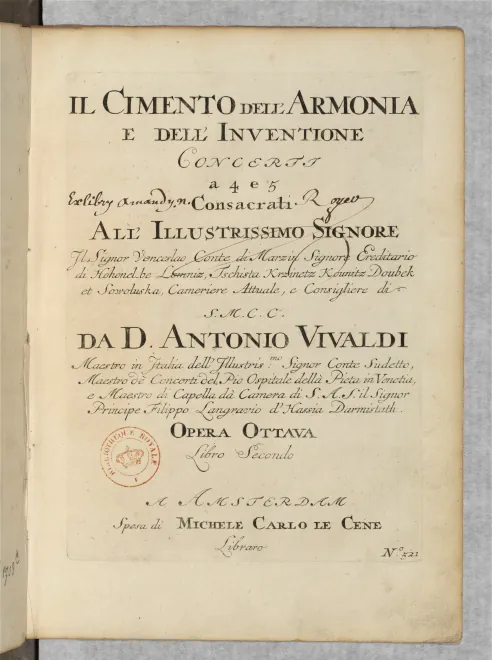 IL CIMENTO DELL' ARMONIA
E DELL' INVENTIONE
CONCERTI
a 4 e 5
Exlibry amandy.n. Consacrati Royer
ALL' ILLUSTRISSIMO SIGNORE
Il Signor Venceslao Conte di Marzin Signore Ereditario
di Hohenelbe Lomniz, Tschista Krzinetz Kounitz Doubek
et Sowoluska, Cameriere Attuale, e Consigliere di
S. M. C. C.
DA D. ANTONIO VIVALDI
Maestro in Italia dell' Illustris.mo Signor Conte Sudetto,
Maestro de Concerti del Pio Ospitale della Pieta in Venetia,
e Maestro di Capella dà Camera di S. A. S. il Signor
Principe Filippo Langravio d'Hassia Darmistath.
OPERA OTTAVA
Libro Secondo
BIBLIOTHEQUE ROYALE
A AMSTERDAM
Spesa di MICHELE CARLO LE CENE
Libraro
No. 521